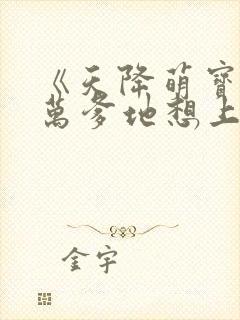 《天降萌寶
萬爹地想上
金宇